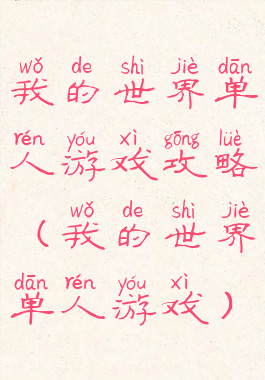 wǒ de shì jiè dān
我的世界单
rén yóu xì gōng lüè
人游戏攻略
wǒ de shì jiè
（我的世界
dān rén yóu xì
单人游戏）